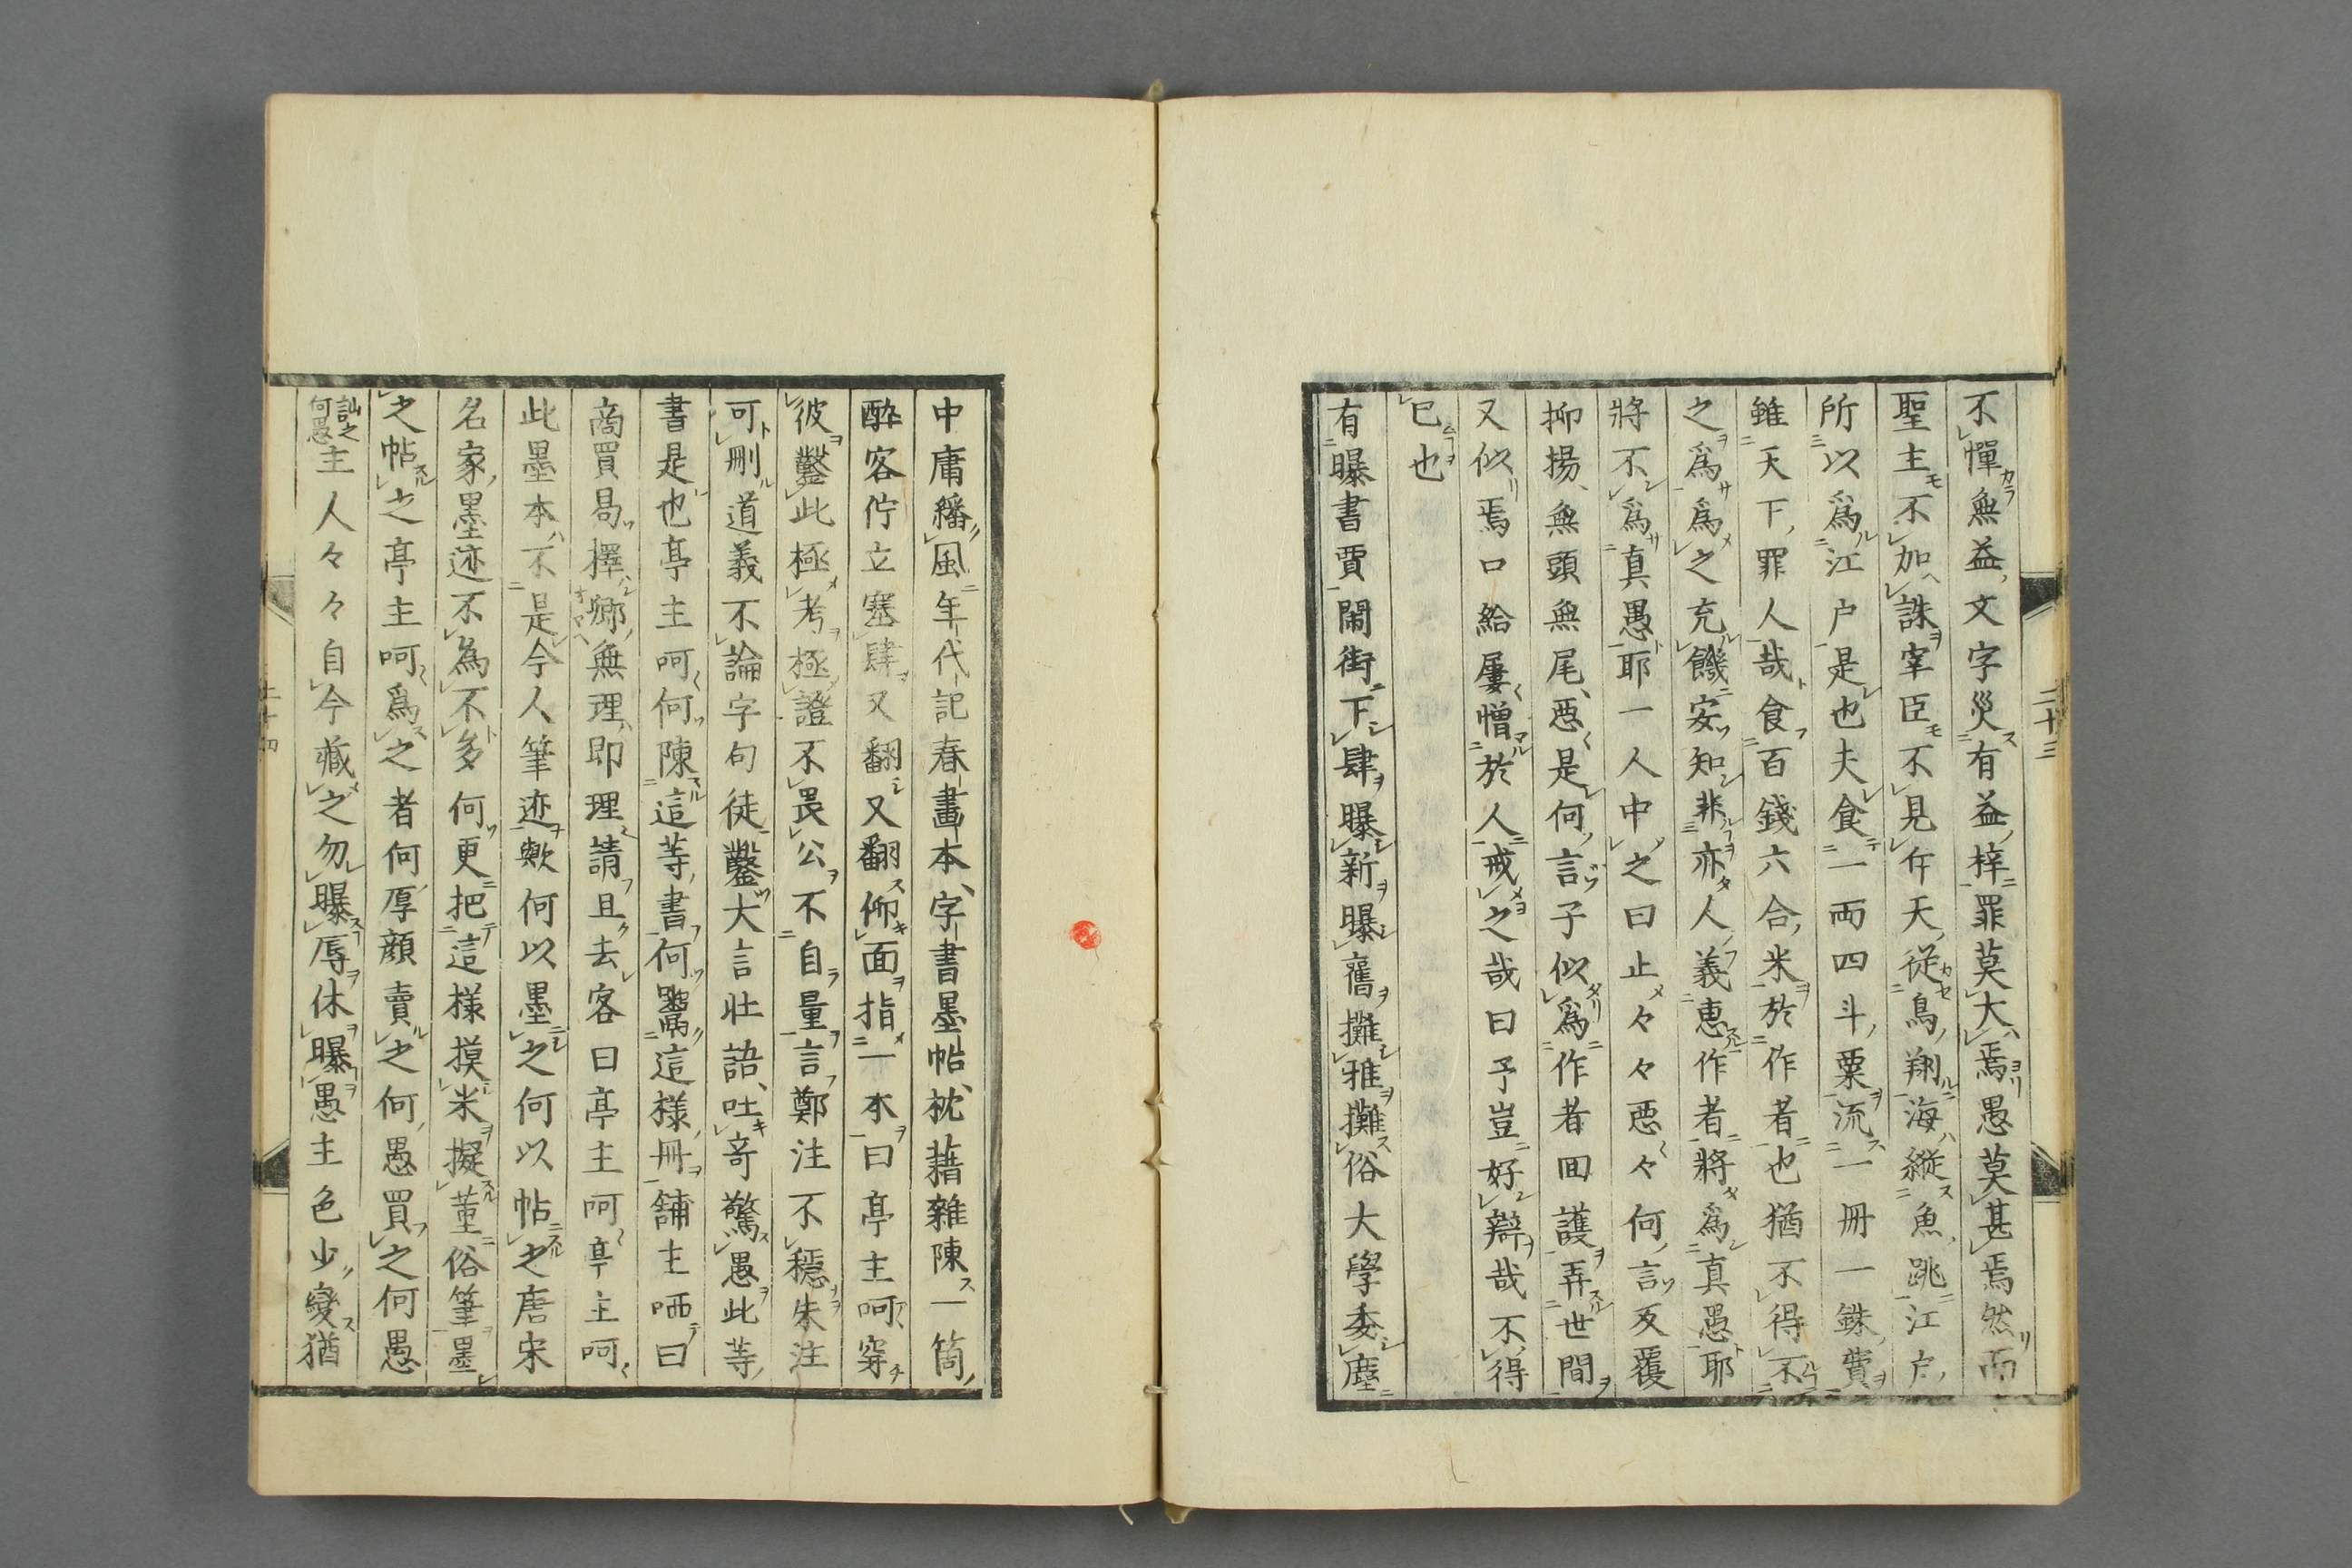 不憚無益文字災有益梓罪莫大焉愚莫甚焉然而
聖主不加誅宰臣不見仵天從鳥翔海縱魚跳江户
所以爲江户是也夫食一両四斗粟流一冊一銖費
雖天下罪人哉食百錢六合米於作者也猶不得不
之爲爲之充饑安知非亦人義恵作者將爲真愚耶
將不爲真愚耶一人中之曰止々々悪々何言反覆
抑揚無頭無尾悪是何言子似爲作者回護弄世間
又似焉口給屢憎於人戒之哉曰予豈好辯哉不得
已也
有曝書賈閙街下肆曝新曝舊攤雅攤俗大學委塵
二十三
中庸繙風年代記春畫本字書墨帖枕藉雜陳一筒
酔客佇立塞肆又翻又翻仰面指一本曰亭主呵穿
彼鑿此極考極證不畏公不自量言鄭注不穩朱注
可刪道義不論字句徒鑿大言壮語吐竒驚愚此等
書是也亭主呵何陳這等書何鬻這様冊舗主哂曰
商買易擇郷無理即理請且去客曰亭主呵亭主呵
此墨本不是今人筆迹歟何以墨之何以帖之唐宋
名家墨迹不為不多何更把這様摸米擬董俗筆墨
之帖之亭主呵爲之者何厚顔賣之何愚買之何愚
訕之何愚主人々々自今藏之勿曝辱休曝愚主色少變猶
二十四